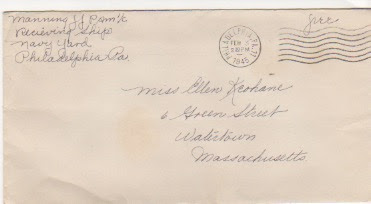 Manning JJ
Recieving Ship
Navy Yard
Philadelphia Pa.
PHILADELPHIA, PA.
FEB
PM
1945
free
Miss Ellen Keohane
6 Green Street
Watertown
Massachusetts